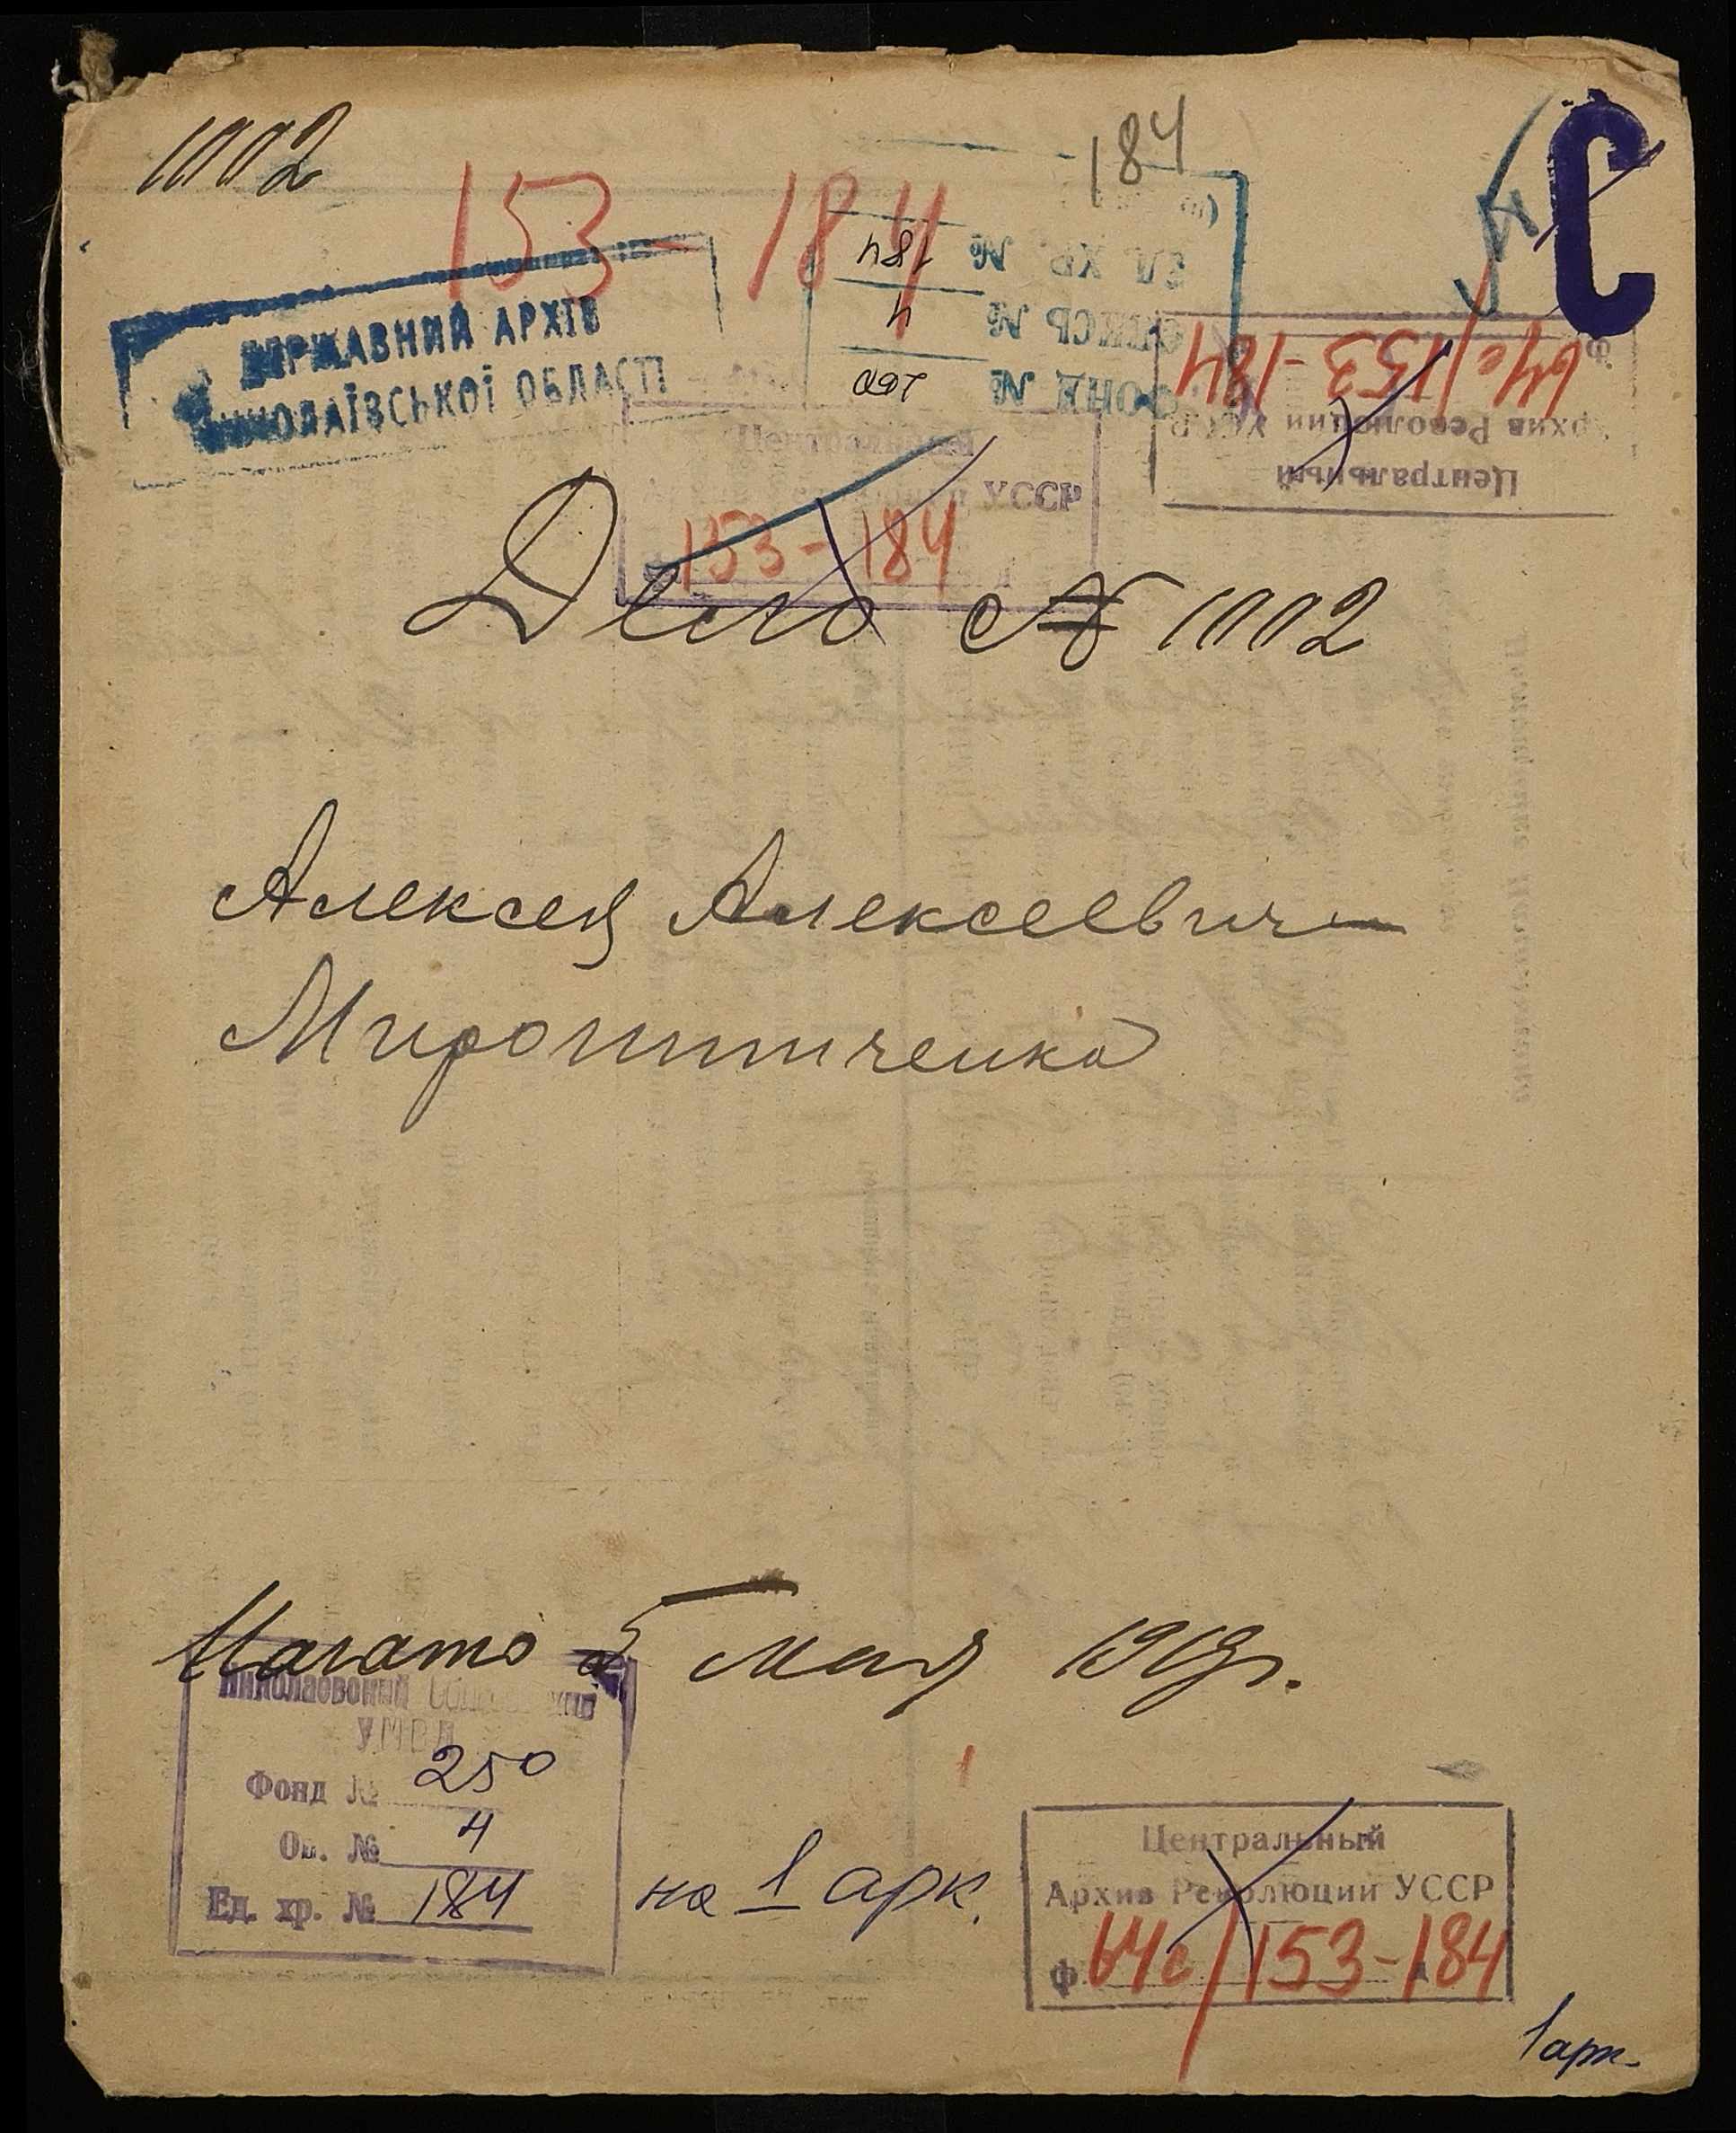 1002
184
153-184
С
ДЕРЖАВНИЙ АРХІВ
МИКОЛАЇВСЬКОЇ ОБЛАСТІ
ФОНД № 250
ОПИСЬ № 4
ЕД. ХР. № 184
Центральный
Архив Революции УССР
Ф 64с/153-184
Центральный
УССР
153-184
Дело № 1002
Алексея Алексеевича
Мирошниченко
Начато 5 мая 1919г.
Николаевский
УМВД
Фонд № 250
Оп. № 4
Ед. хр. № 184
на 1 арк.
Центральный
Архив Революции УССР
Ф 64с/153-184
1 арк.